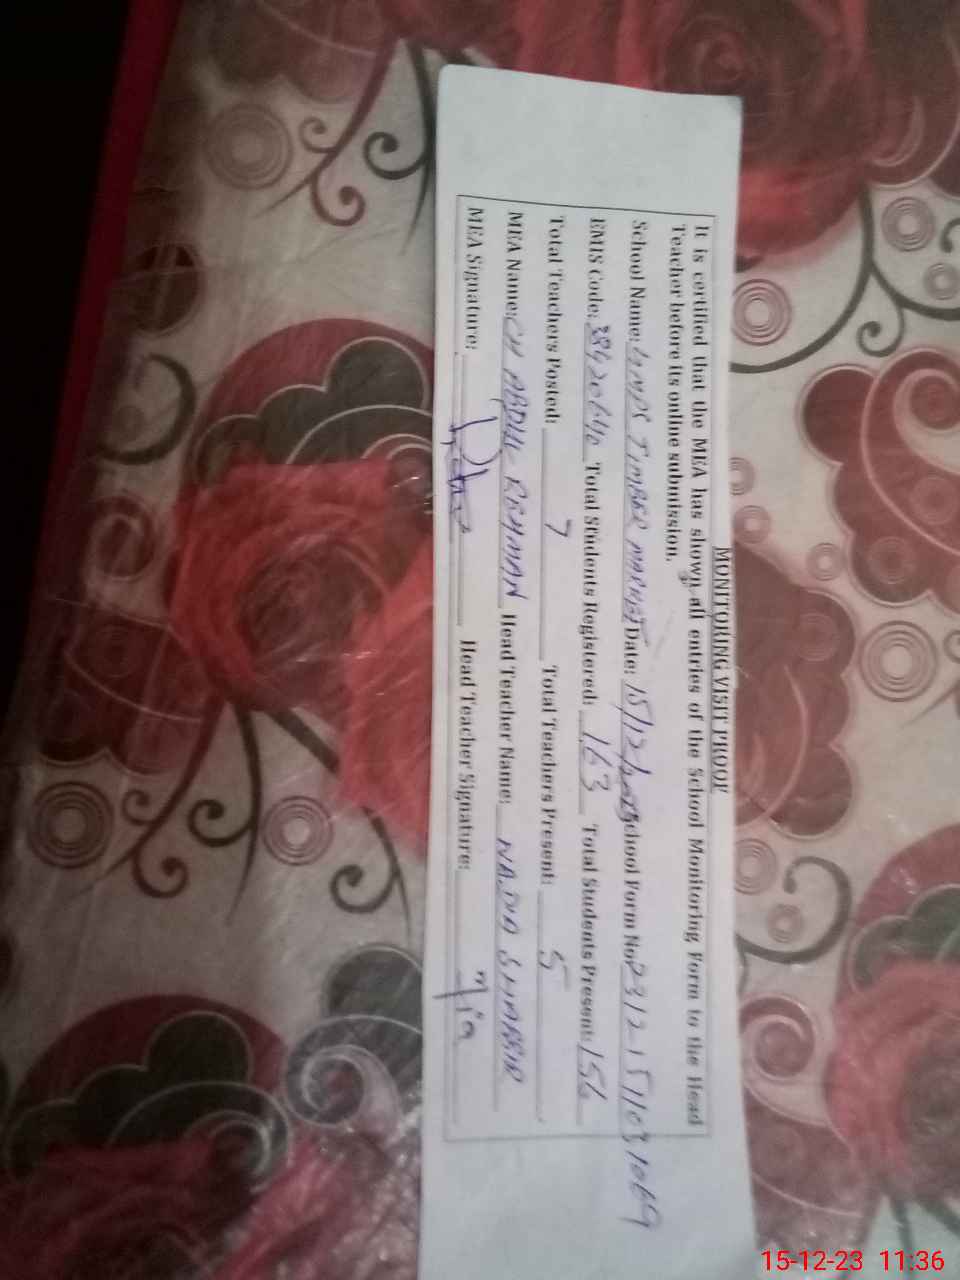 MONITORING VISIT PROOF
It is certified that the MEA has shown all entries of the School Monitoring Form to the Head
Teacher before its online submission.
School Name: GMPS TIMBER MARKET Date: 15/12/ School Form No
EMIS Code: 38420640 Total Students Registered: 163 Total Students Present: 156
Total Teachers Posted: 7 Total Teachers Present: 5
MEA Name: CH ABDUL REHMAN Head Teacher Name: NADIA SHABBIR
MEA Signature: Head Teacher Signature:
15-12-23 11:36